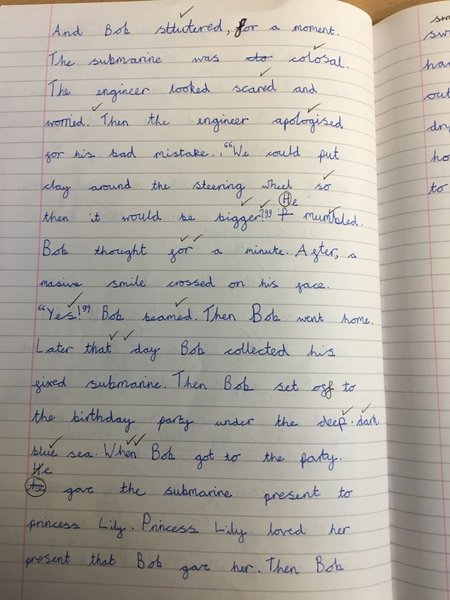 And Bob sttutered, for a moment.
The submarine was colosal.
The engineer looked scared and
worried. Then the engineer apologised
for his bad mistake. "We could put
clay around the steering wheel so
He
then it would be bigger?" mumbled.
Bob thought for a minute. After, a
masive smile crossed on his face.
"Yes!" Bob beamed. Then Bob went home.
Later that day Bob collected his
fixed submarine. Then Bob set off to
the birthday party under the deep, dark
blue sea. When Bob got to the party.
He
he gave the submarine present to
princess Lily. Princess Lily loved her
present that Bob gave her. Then Bob